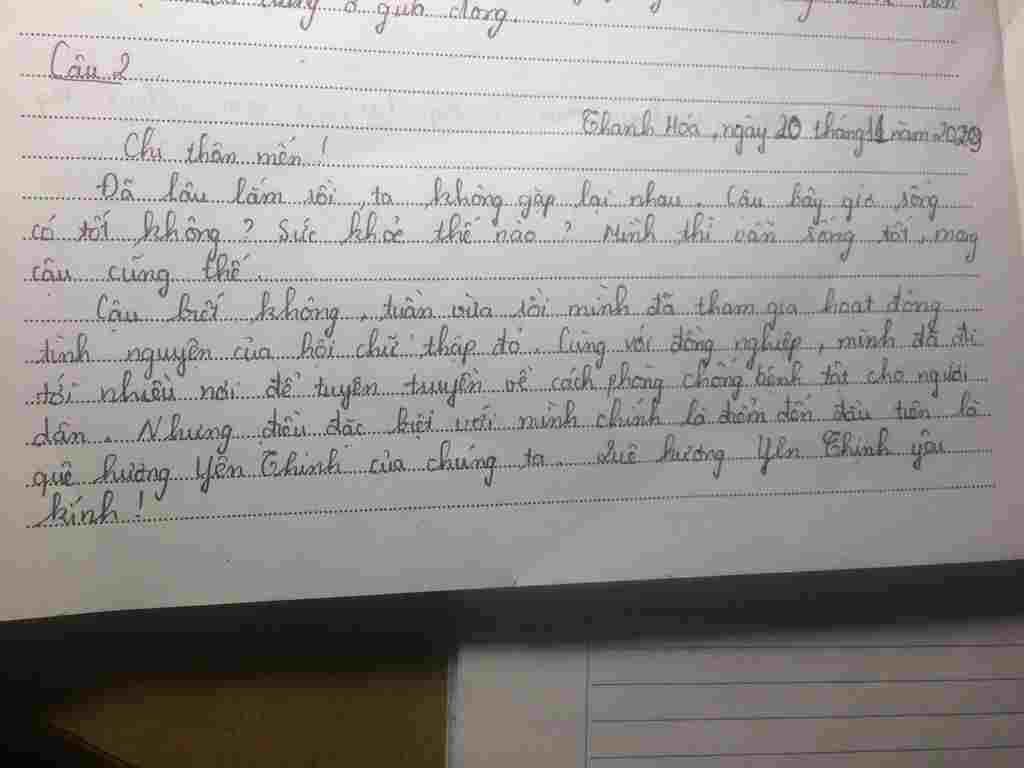 ở quà dong.
Câu 2
Thanh Hóa, ngày 20 tháng 11 năm 2029
Chi thân mến!
Đã lâu lắm rồi, ta không gặp lại nhau. Cậu bây giờ sống
có tốt không? Sức khoẻ thế nào? Mình thì vẫn sống tốt, mong
cậu cũng thế.
Cậu biết không, tuần vừa rồi mình đã tham gia hoạt động
tình nguyện của hội chữ thập đỏ. Cùng với đồng nghiệp, mình đã đi
tới nhiều nơi để tuyên truyền về cách phòng chống bệnh tật cho người
dân. Nhưng điều đặc biệt với mình chính là điểm đến đầu tiên là
quê hương Yên Thinh của chúng ta. Quê hương Yên Thinh yêu
kính!